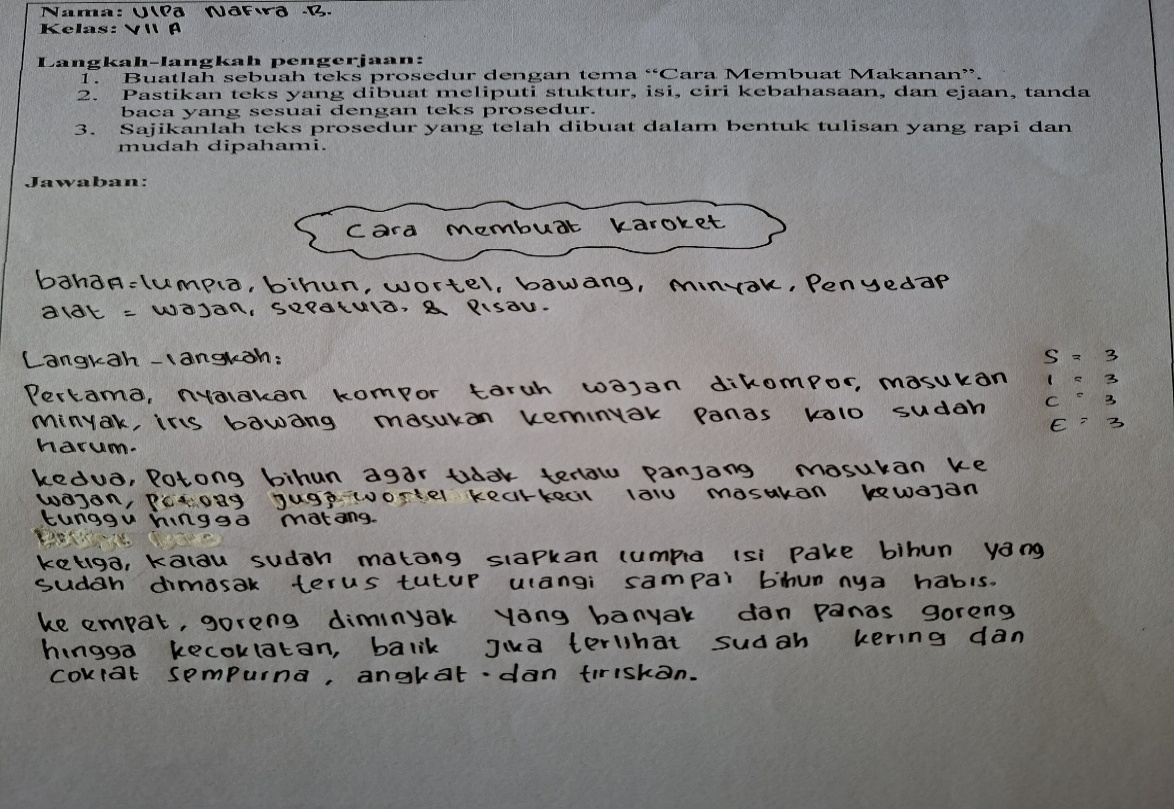 Nama: Ulpa Nafira .B.
Kelas: VII A
Langkah-langkah pengerjaan:
1. Buatlah sebuah teks prosedur dengan tema “Cara Membuat Makanan”.
2. Pastikan teks yang dibuat meliputi stuktur, isi, ciri kebahasaan, dan ejaan, tanda
baca yang sesuai dengan teks prosedur.
3. Sajikanlah teks prosedur yang telah dibuat dalam bentuk tulisan yang rapi dan
mudah dipahami.
Jawaban:
Cara membuat karoket
bahan=lumpia, bihun, wortel, bawang, minyak, Penyedap
alat = wajan, sepatula, & Pisau.
Langkah-langkah:
Pertama, nyalakan kompor taruh wajan dikompor, masukan
minyak, iris bawang masukan keminyak Panas kalo sudah
harum.
S = 3
I = 3
C = 3
E = 3
kedua, Potong bihun agar tidak terlalu panjang masukan ke
wajan, potong juga wortel kecil-kecil lalu masukan kewajan
tunggu hingga matang.
ketiga, kalau sudah matang siapkan lumpia isi pake bihun yang
sudah dimasak terus tutup ulangi sampai bihun nya habis.
ke empat, goreng diminyak yang banyak dan panas goreng
hingga kecoklatan, balik jika terlihat sudah kering dan
coklat sempurna, angkat.dan tiriskan.